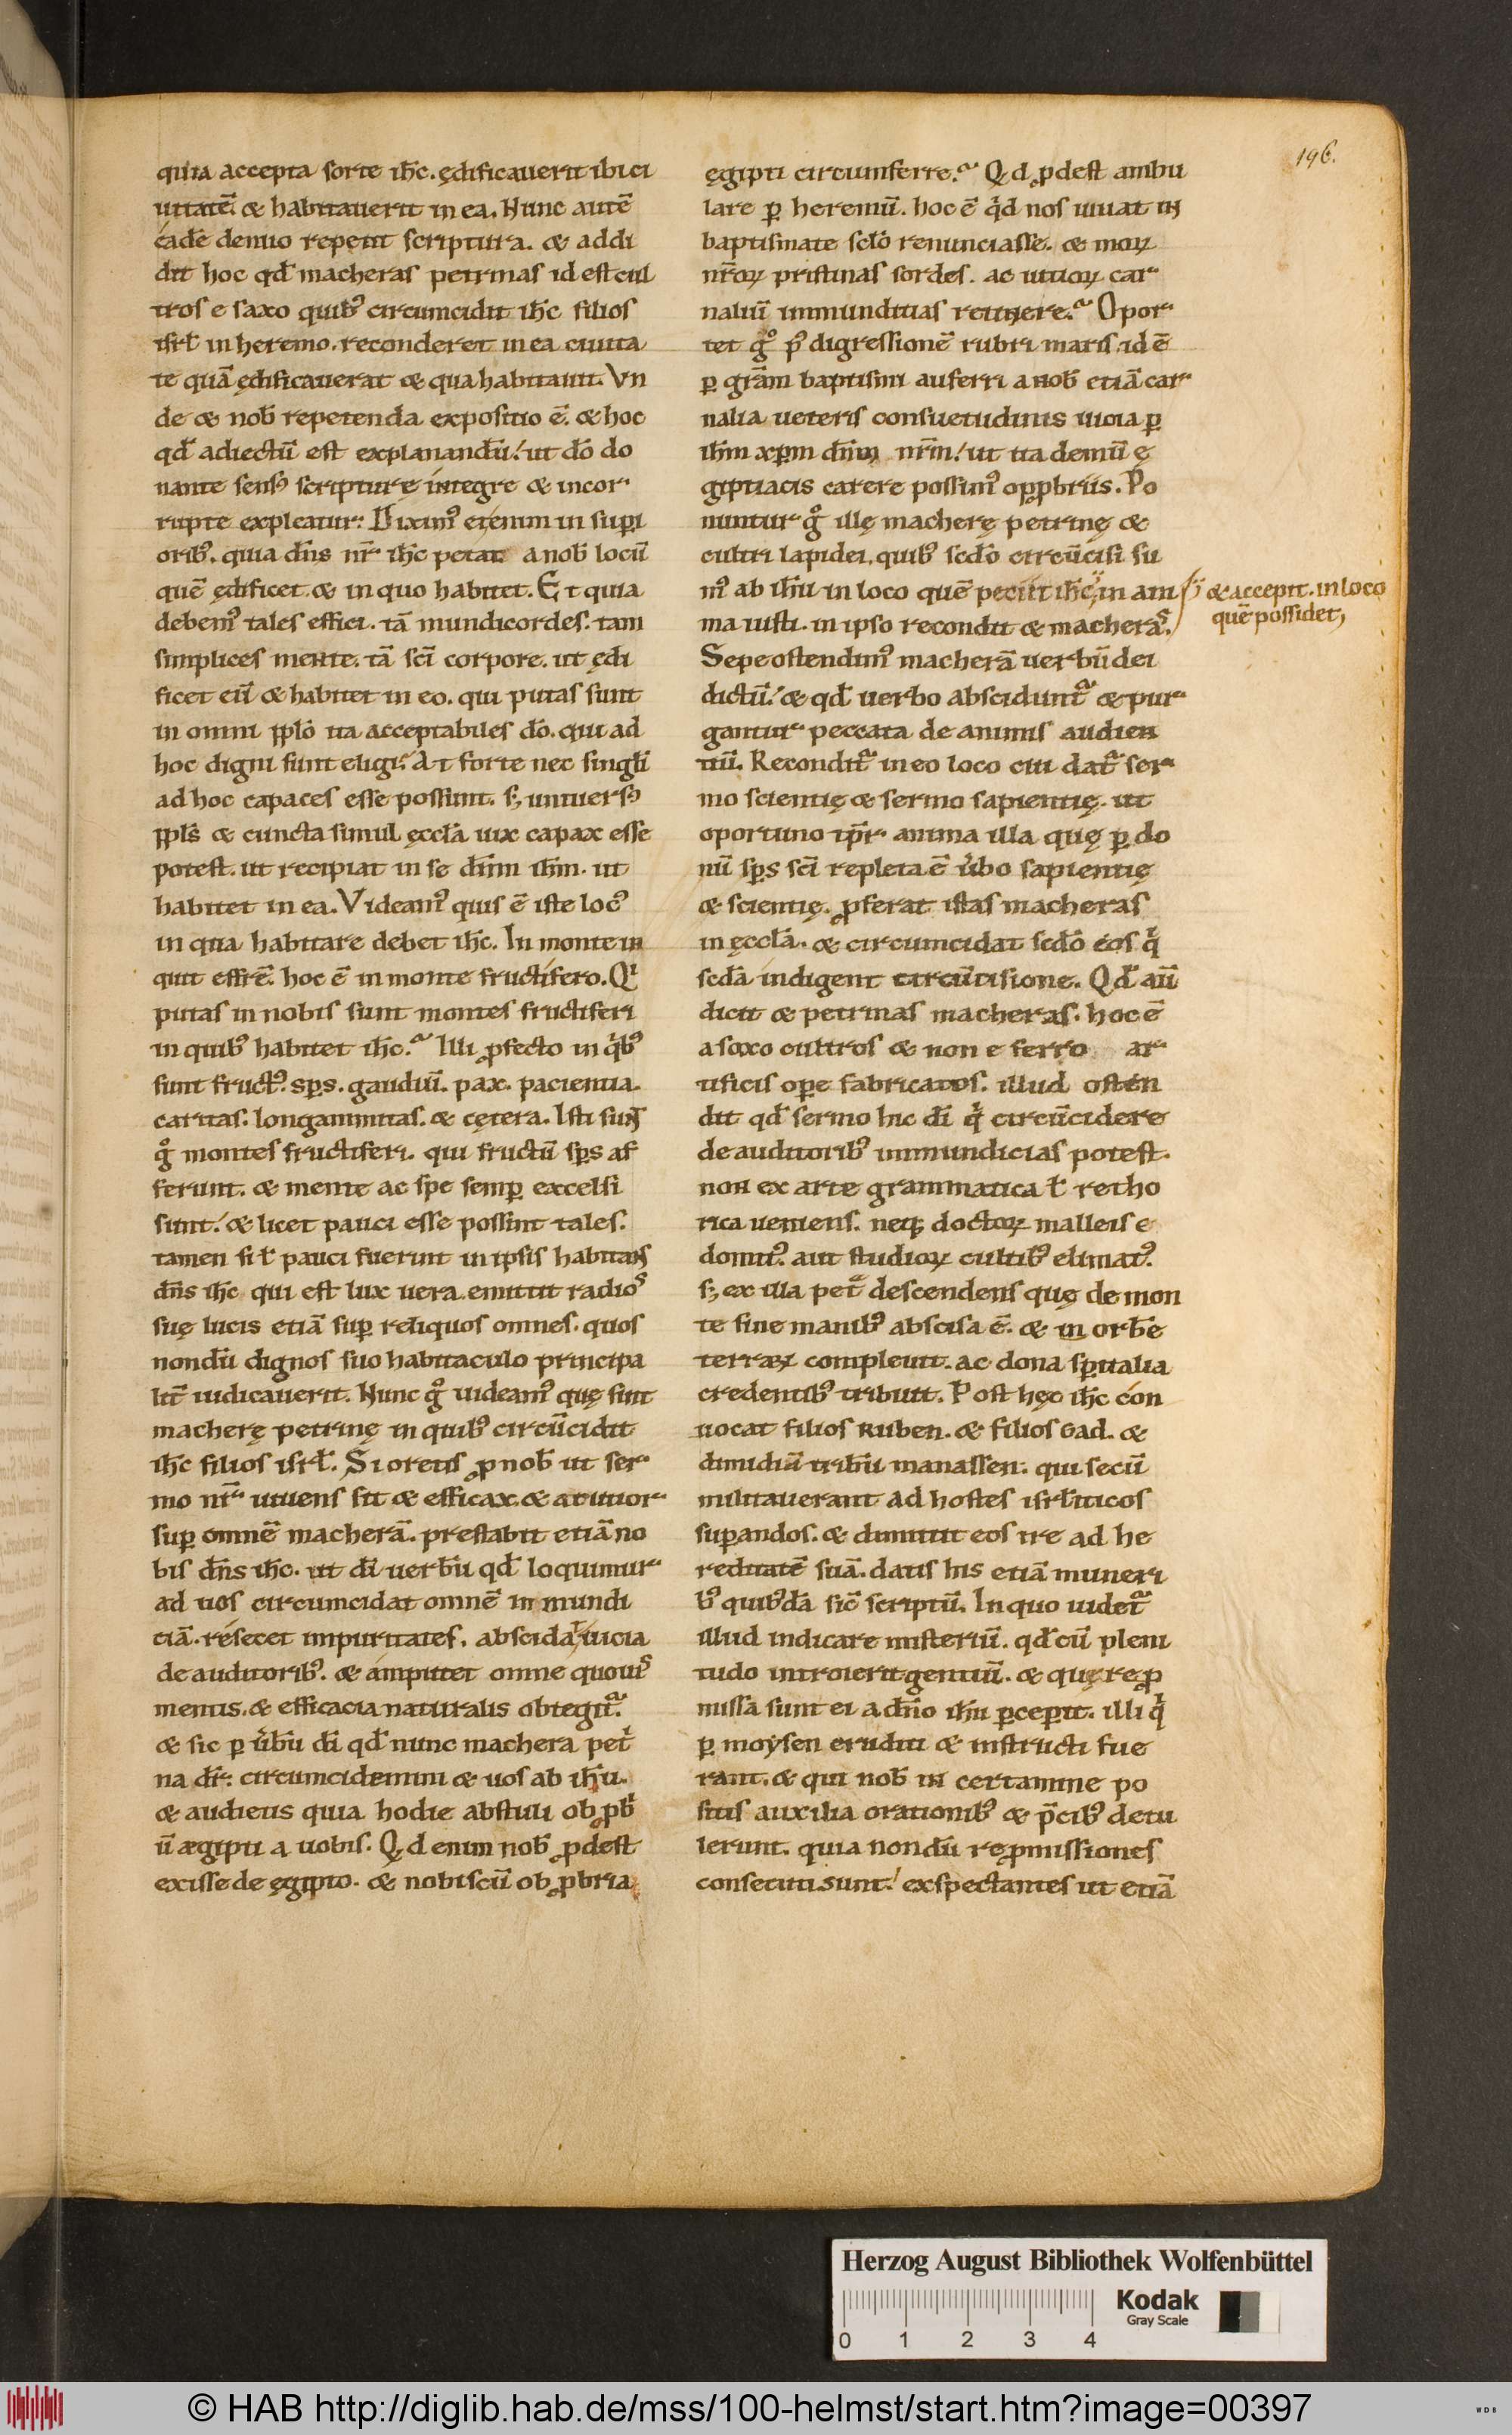 196.
quia accepta sorte ih̄c. ędificauerit ibi ci
uitatē. & habitauerit in ea. Nunc autē
eadē denuo repetit scriptura. & addi
dit hoc qđ macheras petrinas id est cul
tros e saxo quibꝰ circumcidit ih̄c filios
isrł in heremo. reconderet in ea ciuita
te quā ędificauerat & qua habitauit. Vn
de & nob̄ repetenda expositio ē. & hoc
qđ adiectū est explanandū. ut dō do
nante sensꝰ scripturę integre & incor
rupte explicatur. Diximꝰ etenim in supi
oribꝰ. quia dn̄s nr̄ ih̄c petat a nob̄ locū
quē ędificet. & in quo habitet. Et quia
debemꝰ tales effici. tā mundi cordes. tam
simplices mente. tā sc̄i corpore. ut ędi
ficet eū & habitet in eo. qui putas sunt
in omni ꝓplō ita acceptabiles dō. qui ad
hoc digni sunt eligi? At forte nec singłi
ad hoc capaces esse possunt. sꝫ uniuersꝰ
ꝓpls̄ & cuncta simul ęcclā uix capax esse
potest. ut recipiat in se dn̄m ih̄m. ut
habitet in ea. Videamꝰ quis ē iste locꝰ
in qua habitare debet ih̄c. In monte in
quit effrē. hoc ē in monte fructifero. Qi
putas in nobis sunt montes fructiferi
in quibꝰ habitet ih̄c? Illi ꝓfecto in qibꝰ
sunt fructꝰ. sps. gaudiū. pax. pacientia.
caritas. longanimitas. & cętera. Isti sunt
gͦ montes fructiferi. qui fructū sps af
ferunt. & mente ac spe semꝑ excelsi
sunt. & licet pauci esse possint tales.
tamen si ł pauci fuerint in ipsis habitans
dn̄s ih̄c qui est lux uera emittit radios
suę lucis etiā suꝑ reliquos omnes. quos
nondū dignos suo habitaculo principa
lit̄ iudicauerit. Nunc gͦ uideamꝰ quę sint
macherę petrinę in quibꝰ circūcidit
ih̄c filios isrł. Si oretis ꝓ nob̄ ut ser
mo nr̄ uiuens sit & efficax. & acutior
suꝑ omnē macherā. prestabit etiā no
bis dn̄s ih̄c. ut dī uerbū qđ loquimur
ad uos circumcidat omnē inmundi
ciā. resecet impuritates. abscidat uicia
de auditoribꝰ. & amputet omne quo uis
mentis. & efficacia naturalis obtegit̄.
& sic ꝑ ubū dī qđ nunc machera pet
na dr̄. circumcidemini & uos ab ih̄u.
& audietis quia hodie abstuli obꝓb
ū ægipti a uobis. Qd enim nob̄ ꝓdest
exisse de ęgipto. & nobiscū obꝓbria
ęgipti circumferre? Qd ꝓdest ambu
lare ꝑ heremū. hoc ē qd nos iuuat in
baptismate sclō renunciasse. & moꝝ
nr̄oꝝ pristinas sordes. ac uitioꝝ car
naliū immunditias retinere? Opor
tet gͦ p̄ digressionē rubri maris. id ē
ꝑ grām baptismi auferri a nob̄ etiā car
nalia ueteris consuetudinis uicia ꝑ
ih̄m xpm dn̄m nr̄m. ut ita demū ę
giptiacis carere possimꝰ opꝓbriis. Po
nuntur gͦ illę macherę petrinę &
cultri lapidei. quibꝰ scdō circūcisi su
mꝰ ab ih̄u in loco quē peciit ih̄c, in ani
ma iusti. in ipso recondit & macheras.
& accepit. in loco
quē possidet,
Sepe ostendimꝰ macherā uerbū dei
dictū. & qđ uerbo abscidunt̄ & pur
gantur peccata de animis audien
tiū. Recondit̄ in eo loco cui dat̄ ser
mo scientię & sermo sapientię. ut
oportuno tp̄r anima illa quę ꝑ do
nū sps sc̄i repleta ē ubo sapientię
& scientię. ꝓferat istas macheras
in ęcclā. & circumcidat scdō eos q
scdā indigent circūcisione. Qđ aū
dicit & petrinas macheras. hoc ē
a saxo cultros & non e ferro ar
tificis oꝑe fabricatos. illud osten
dit qđ sermo hic dī q circūcidere
de auditoribꝰ inmundicias potest.
non ex arte grammatica ł retho
rica ueniens. neqꝫ doctoꝝ malleis e
domitꝰ. aut studioꝝ cultibꝰ elimatꝰ.
sꝫ ex illa pet̄ descendens quę de mon
te sine manibꝰ abscisa ē. & in orbē
terraꝝ compleuit. ac dona sp̄italia
credentibꝰ tribuit. Post hęc ih̄c con
uocat filios Ruben. & filios Gad. &
dimidiā tribū manassen. qui secū
militauerant ad hostes isrłiticos
suꝑandos. & dimittit eos ire ad he
reditatē suā. datis his etiā muneri
bꝰ quibꝰdā sic̄ scriptū. In quo uidet̄
illud indicare misteriū. qđ cū pleni
tudo introierit gentiū. & quę reꝓ
missa sunt ei a dn̄o ih̄u ꝑceꝑit. illi q
ꝑ moẏsen eruditi & instructi fue
rant. & qui nob̄ in certamine po
sitis auxilia orationibꝰ & p̄cibꝰ detu
lerunt. quia nondū reꝓmissiones
consecuti sunt. exspectantes ut etiā
Herzog August Bibliothek Wolfenbüttel
Kodak
Gray Scale
0 1 2 3 4
© HAB http://diglib.hab.de/mss/100-helmst/start.htm?image=00397
WDB